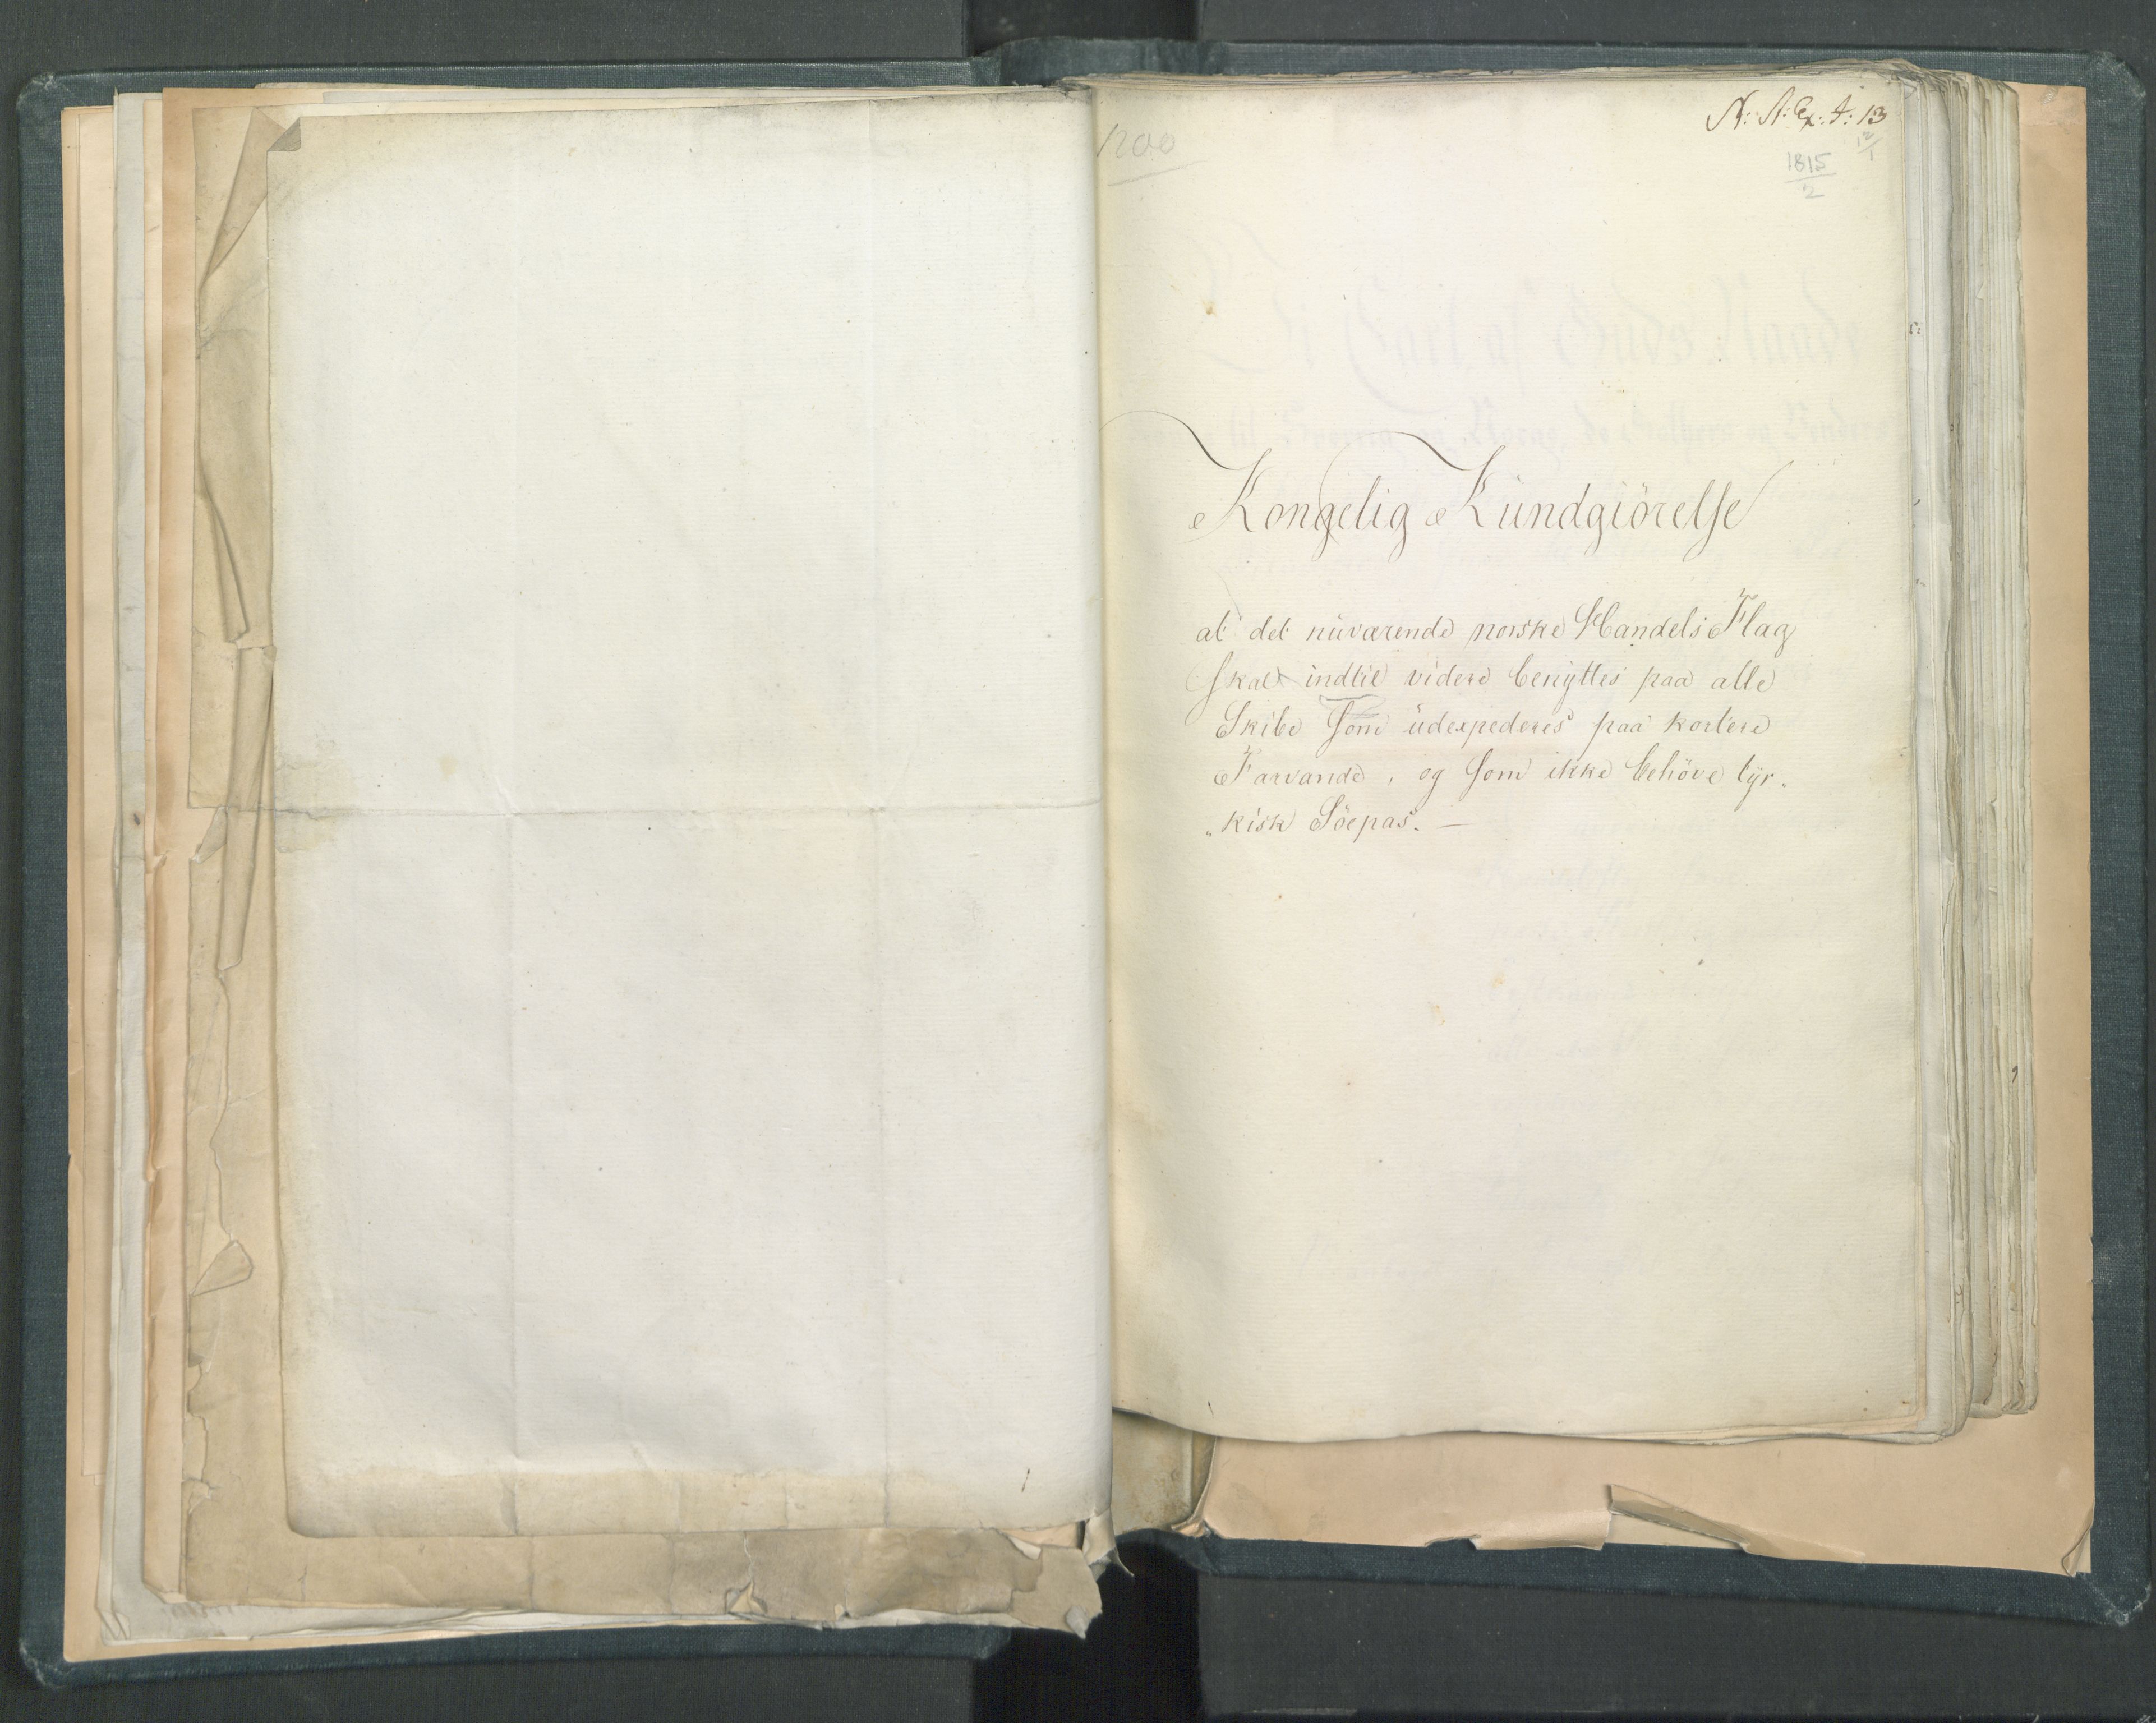 1200
N: A: Ex: 4: 13
12/1
1815/2
Kongelig Kundgiörelse
at det nuværende norske Handels Flag
skal indtil videre benyttes paa alle
Skibe som udexpederes paa kortere
Farvande, og som ikke behöve tyr-
"kisk Söepas. —